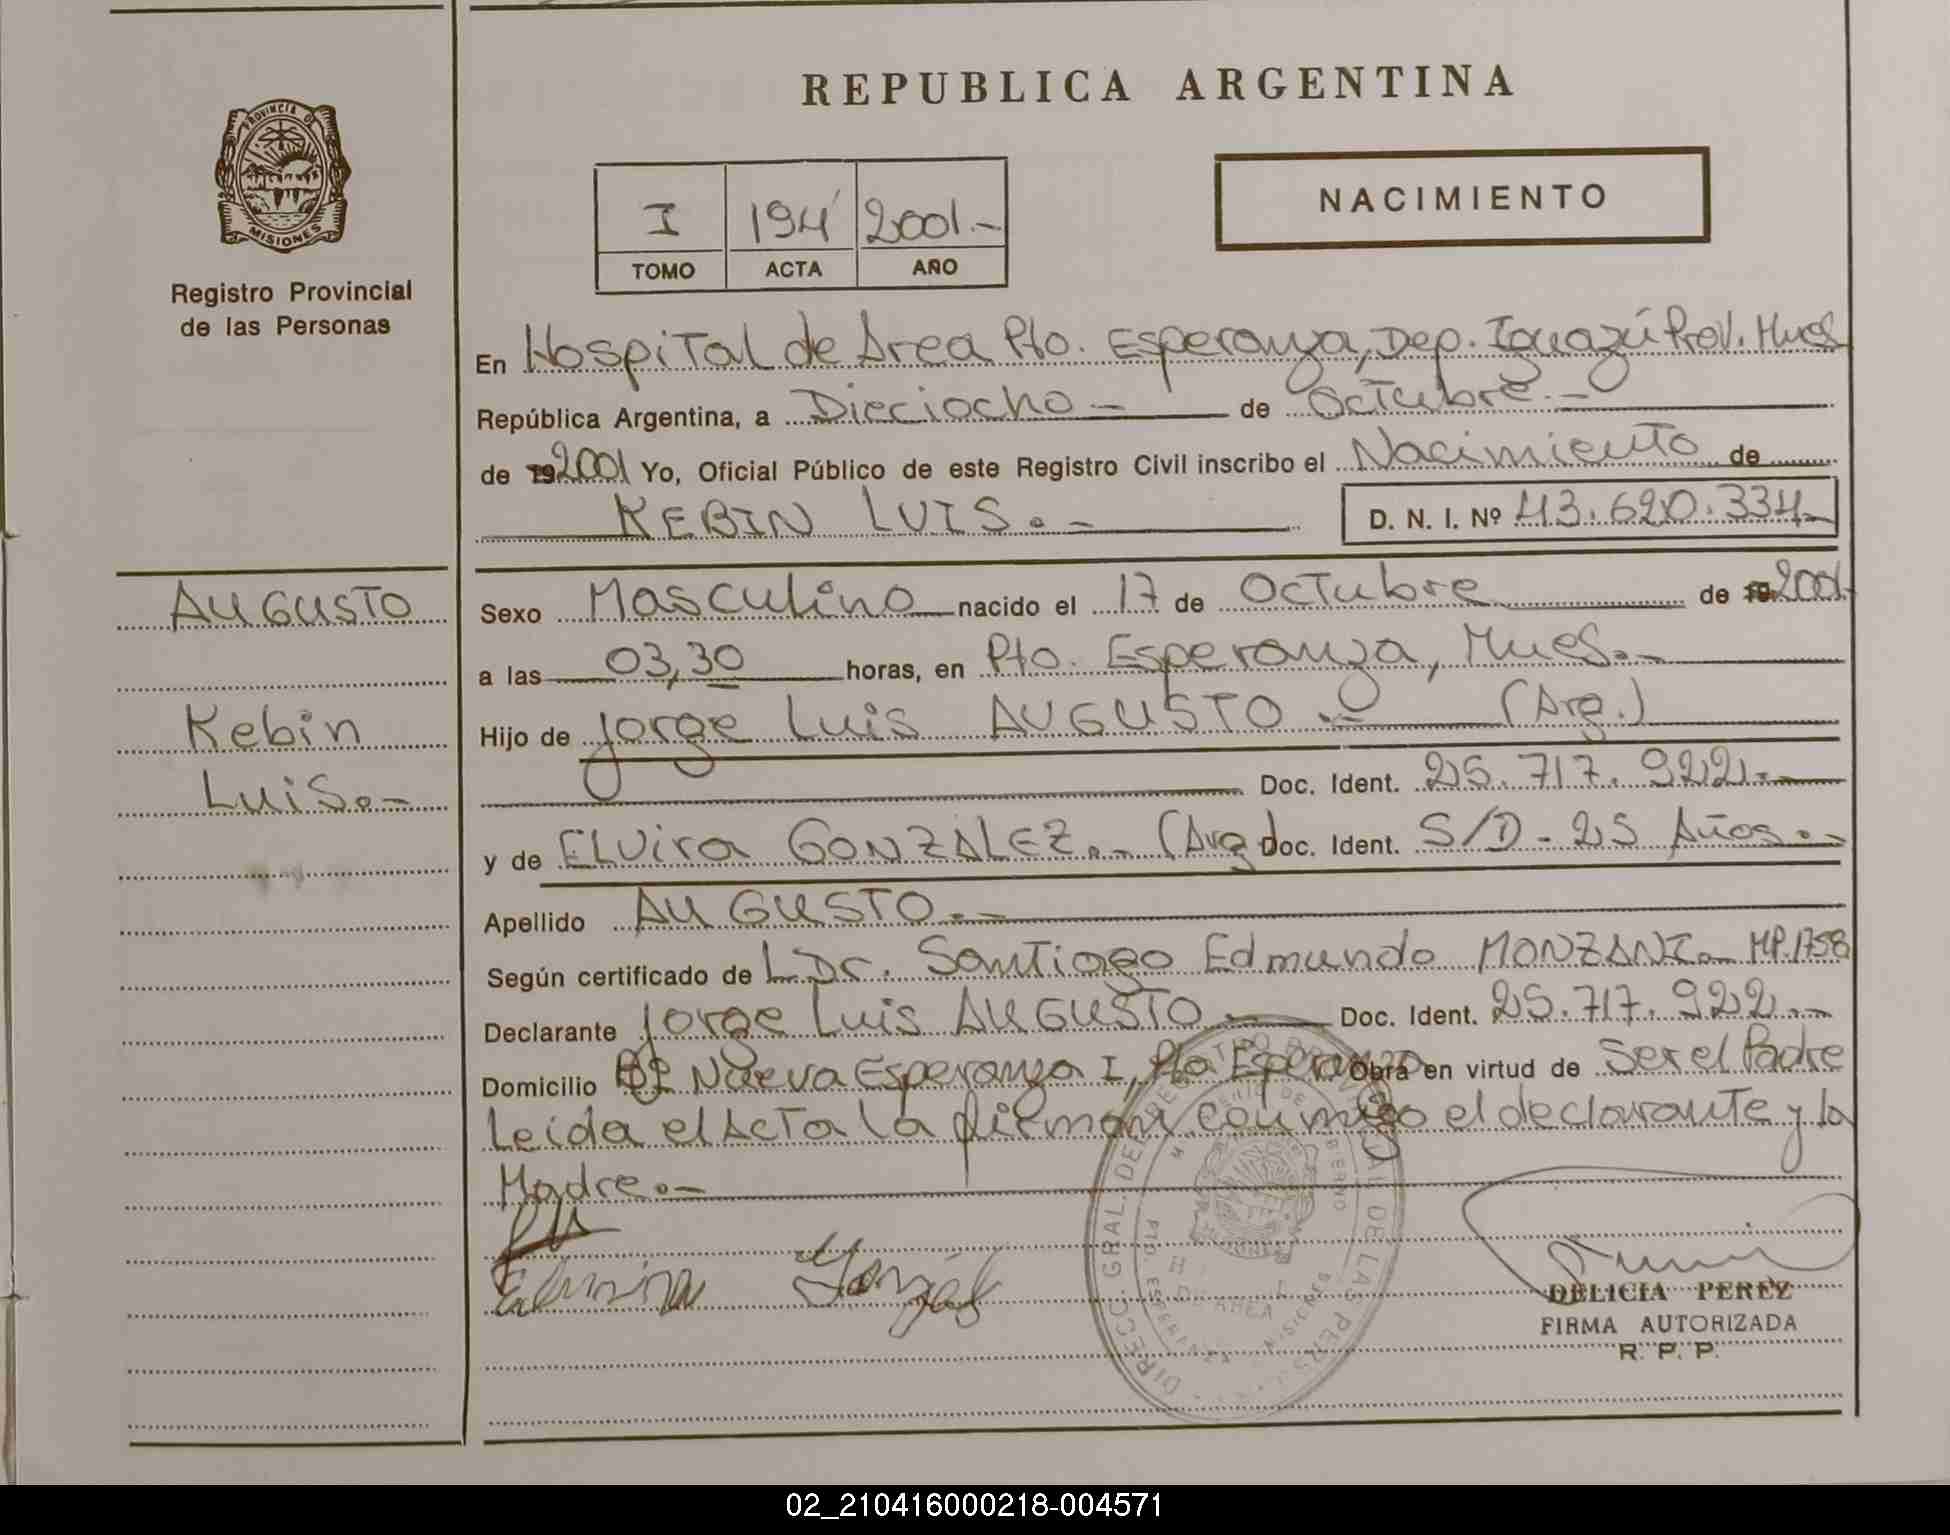 REPUBLICA ARGENTINA
PROVINCIA DE
MISIONES
Registro Provincial
de las Personas
NACIMIENTO
I 194 2001.-
TOMO ACTA AÑO
En Hospital de Area Pto. Esperanza, Dep. Iguazú Prov. Mnes
República Argentina, a Dieciocho - de Octubre.-
de 192001 Yo, Oficial Público de este Registro Civil inscribo el Nacimiento de
KEBIN LUIS.- D. N. I. Nº 43.620.334-
AUGUSTO
Kebin
Luis.-
Sexo Masculino nacido el 17 de Octubre de 192001-
a las 03,30 horas, en Pto. Esperanza, Mnes.-
Hijo de Jorge Luis AUGUSTO.- (Arg.)
Doc. Ident. 25.717.922.-
y de ELvira GONZALEZ.- (Arg) Doc. Ident. S/D - 25 Años.-
Apellido AUGUSTO.-
Según certificado de Dr. Santiago Edmundo MONZANI.- MP.1758
Declarante Jorge Luis AUGUSTO.- Doc. Ident. 25.717.922.-
Domicilio Bº Nueva Esperanza I, Pto Esperanza Obra en virtud de Ser el Padre
Leida el Acta la firman conmigo el declarante y la
Madre.-
DELICIA PEREZ
FIRMA AUTORIZADA
R. P. P.
DIRECC. GRAL. DE REGISTRO PROVINCIAL DE LAS PERS.
02_210416000218-004571